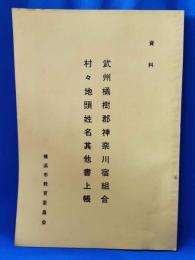 資料
武州橘樹郡神奈川宿組合
村々地頭姓名其他書上帳
横浜市教育委員会